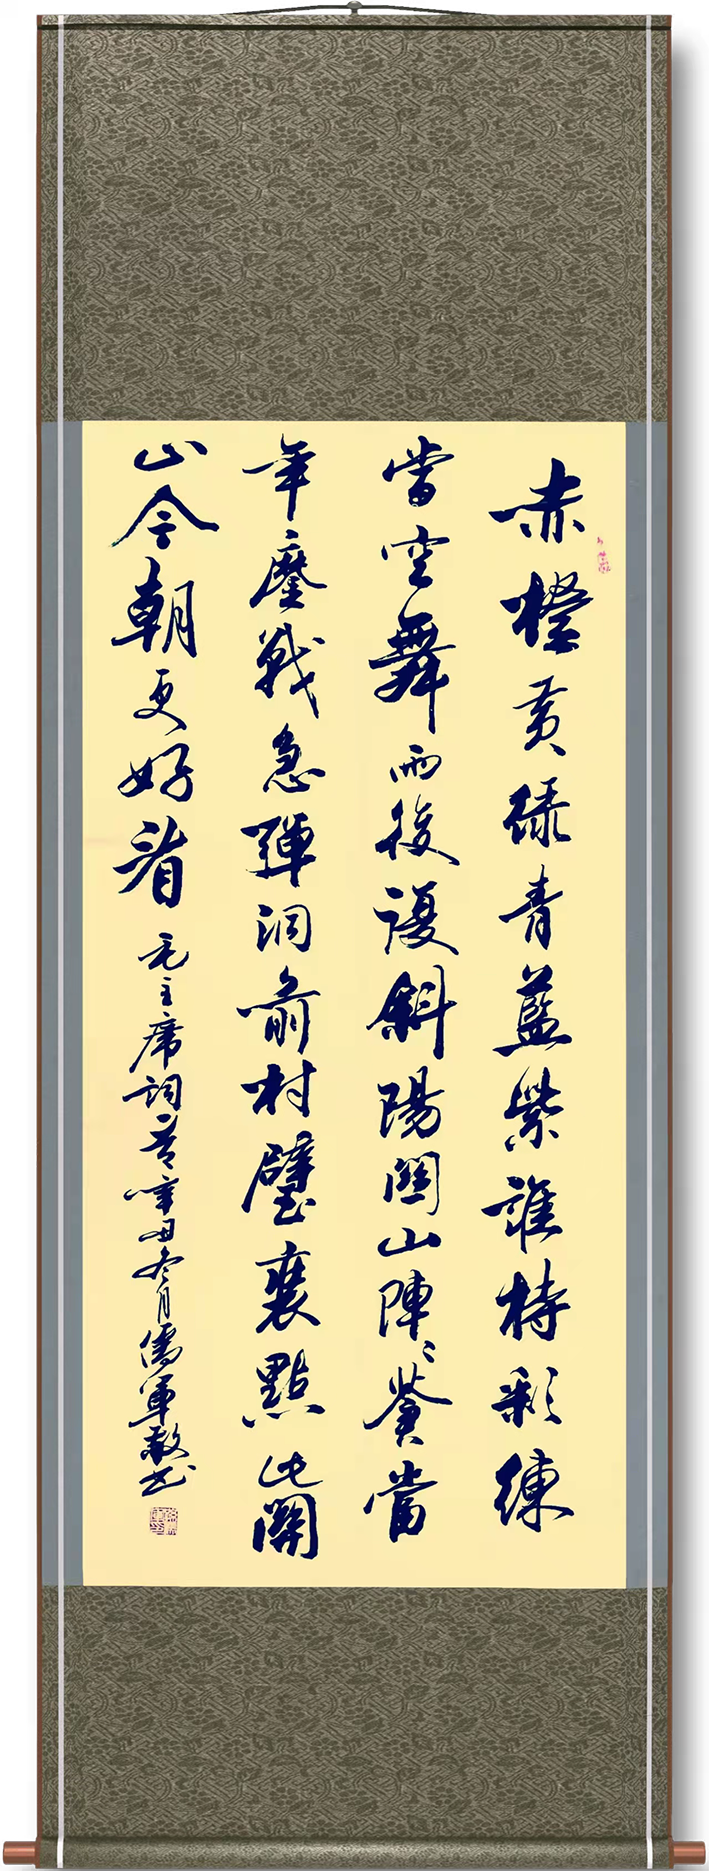 赤橙黄緑青藍紫誰持彩練
當空舞雨後復斜陽關山陣〻蒼當
年鏖戰急彈洞前村壁裝點此關
山今朝更好看 毛主席詞一首 辛丑冬月 儒軍敬书